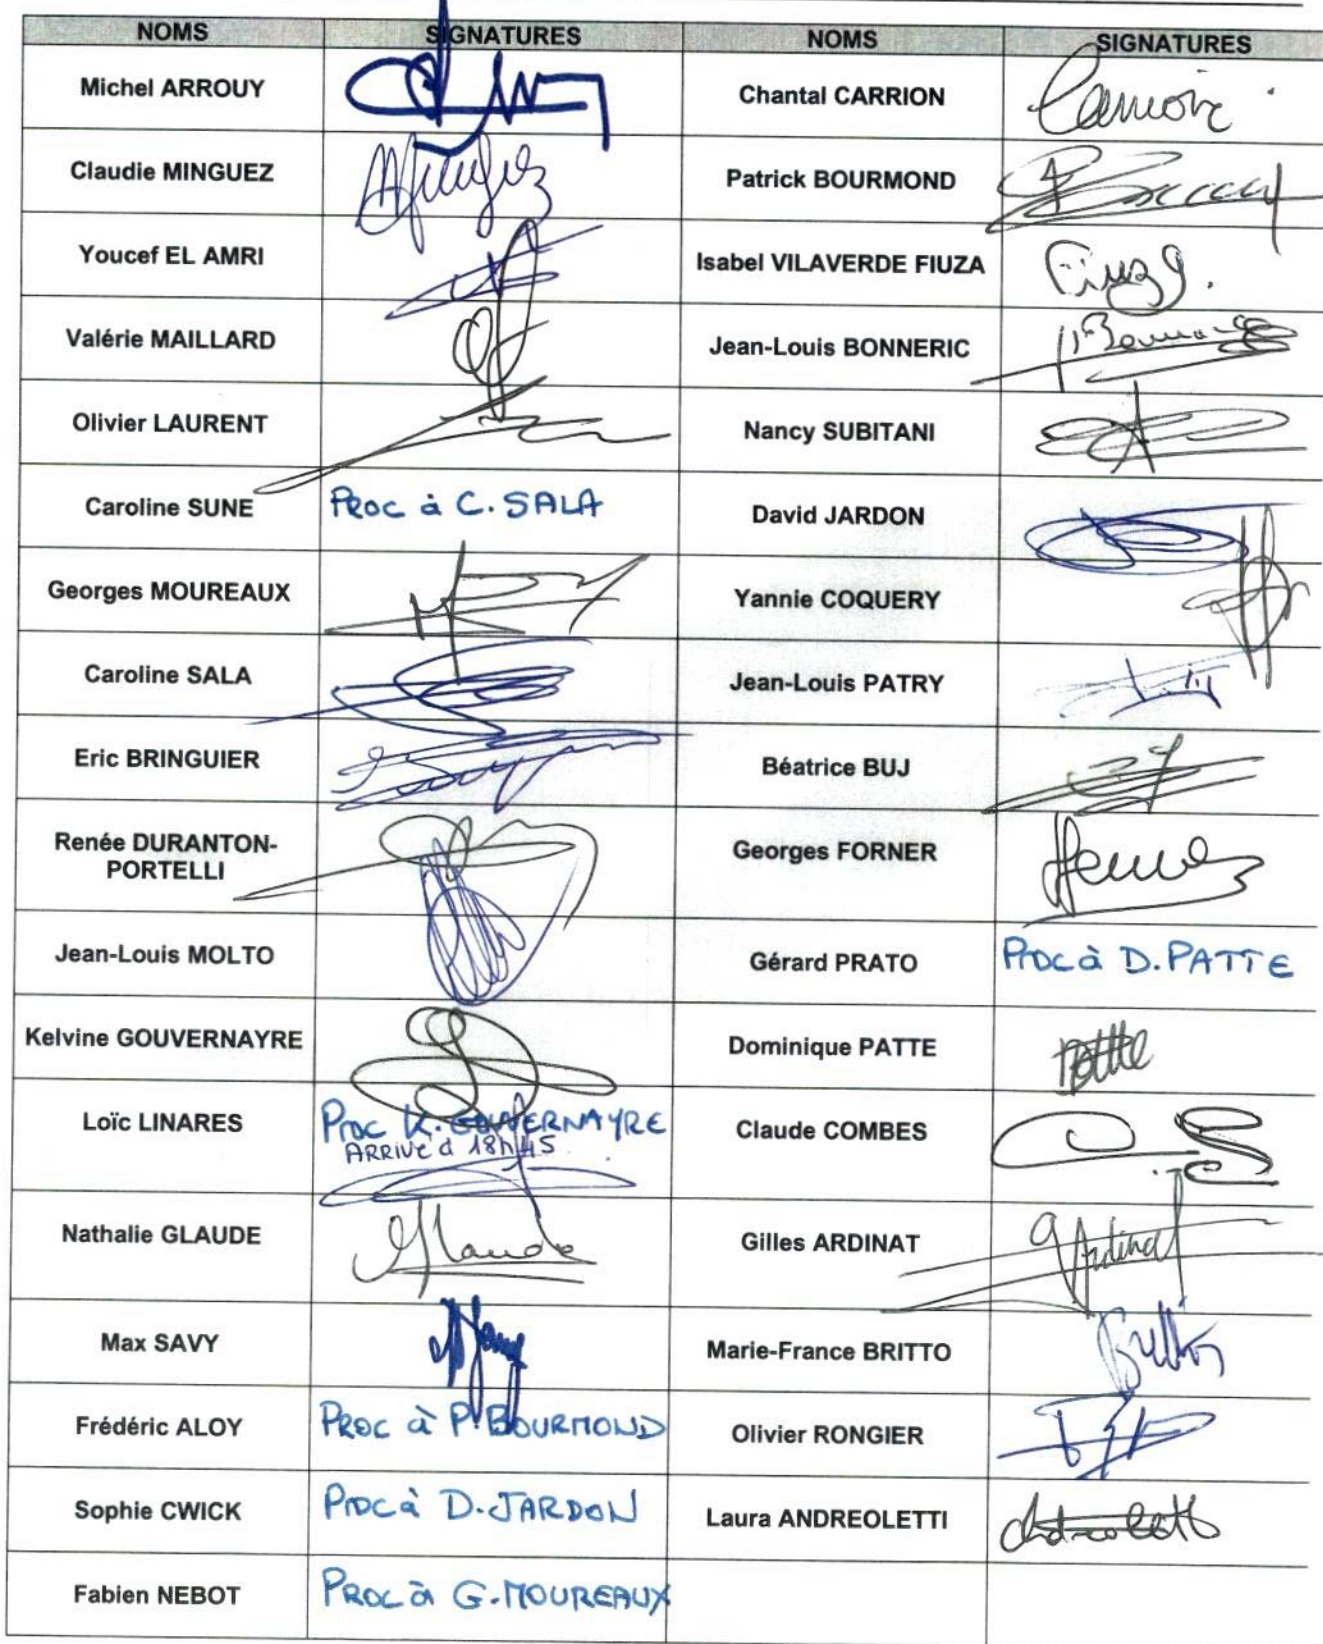 NOMS SIGNATURES NOMS SIGNATURES
Michel ARROUY Chantal CARRION
Claudie MINGUEZ Patrick BOURMOND
Youcef EL AMRI Isabel VILAVERDE FIUZA
Valérie MAILLARD Jean-Louis BONNERIC
Olivier LAURENT Nancy SUBITANI
Caroline SUNE PROC à C. SALA David JARDON
Georges MOUREAUX Yannie COQUERY
Caroline SALA Jean-Louis PATRY
Eric BRINGUIER Béatrice BUJ
Renée DURANTON-
PORTELLI Georges FORNER
Jean-Louis MOLTO Gérard PRATO PROC à D. PATTE
Kelvine GOUVERNAYRE Dominique PATTE Patte
Loïc LINARES PROC K. GOUVERNAYRE Claude COMBES
ARRIVE à 18h45
Nathalie GLAUDE Glaude Gilles ARDINAT Ardinat
Max SAVY Marie-France BRITTO
Frédéric ALOY PROC à P. BOURMOND Olivier RONGIER
Sophie CWICK PROC à D. JARDON Laura ANDREOLETTI
Fabien NEBOT PROC à G. MOUREAUX